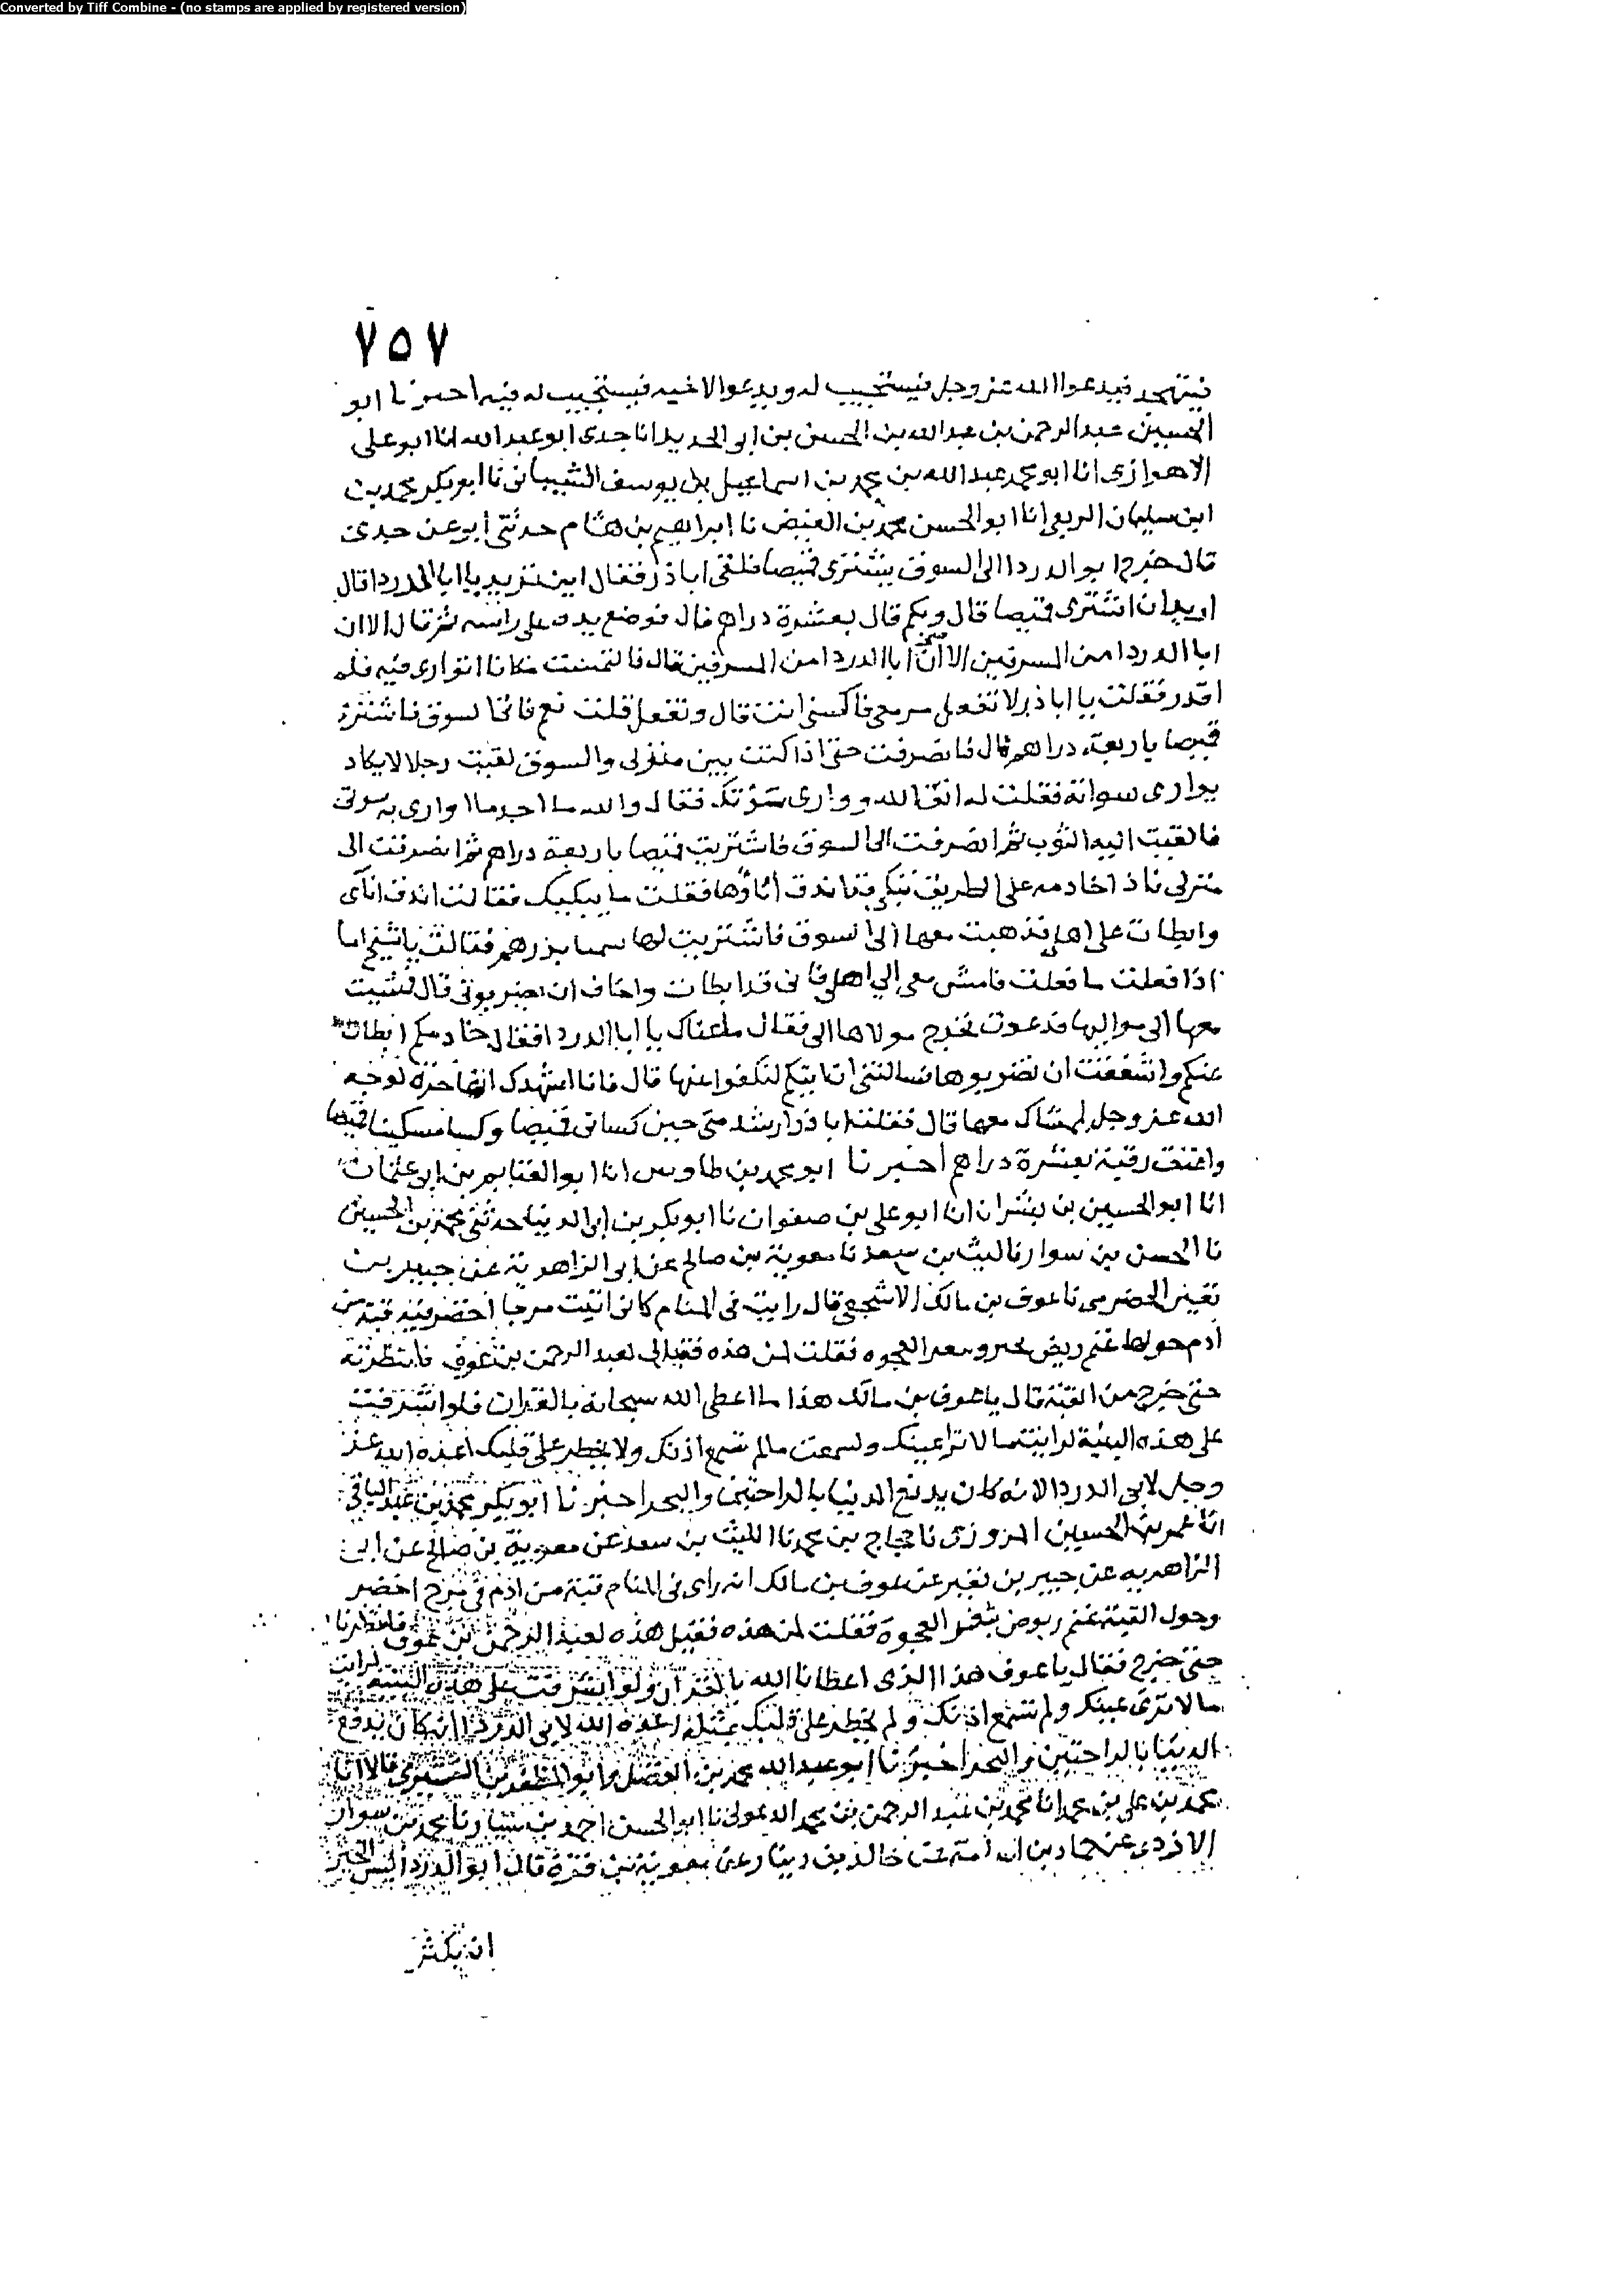 Converted by Tiff Combine - (no stamps are applied by registered version)
٧٥٧
فيتهجد فيدعوا الله عز وجل فيستجيب له ويدعوا لاخيه فيستجيب له فيه اخبرنا ابو
الحسين عبد الرحمن بن عبد الله بن الحسن بن ابي الحديد انا جدى ابو عبد الله انا ابو على
الاهوازى انا ابو محمد عبد الله بن محمد بن اسماعيل بن يوسف الشيبانى نا ابو بكر محمد بن
ابن سليمان الربعى انا ابو الحسن محمد بن الفيض نا ابراهيم بن هشام حدثنى ابى عن جدى
قال خرج ابو الدردا الى السوق يشترى قميصا فلقى اباذر فقال اين تريد يا ابا الدردا قال
اريد ان اشترى قميصا قال وبكم قال بعشرة دراهم قال فوضع يده على راسه ثم قال الا ان
ابا الدردا من المسرفين الا ان ابا الدردا من المسرفين قال فالتمست مكانا اتوارى فيه فلم
اقدر فقلت يا اباذر لا تفعل مر معى فاكسنى انت قال وتفعل قلت نعم فاتى السوق فاشترى
قميصا باربعة دراهم قال فانصرفت حتى اذا كنت بين منزلى والسوق لقيت رجلا لا يكاد
يوارى سواته فقلت له اتق الله ووارى سؤتك فقال والله ما اجد ما اوارى به سوتى
فالقيت اليه الثوب ثم انصرفت الى السوق فاشتريت قميصا باربعة دراهم ثم انصرفت الى
منزلى فاذا خادمه على الطريق تبكى قد اندق اناؤها فقلت ما يبكيك فقالت اندق انآى
وابطات على اهلى فذهبت معها الى السوق فاشتريت لها سمنا بدرهم فقالت يا شيخ اما
اذا فعلت ما فعلت فامش معى الى اهلى فانى قد ابطات واخاف ان يضربونى قال فمشيت
معها الى مواليها فدعوت فخرج مولاها الى فقال ما عناك يا ابا الدردا فقال خادمكم ابطات
عنكم واشفقت ان تضربوها فسالتنى ان اتيكم لتكفوا عنها قال فانا اشهدك انها حرة لوجه
الله عز وجل لممشاك معها قال فقلت اباذر ارشد منى حين كسانى قميصا وكسا مسكينا قميصا
واعتق رقبة بعشرة دراهم اخبرنا ابو محمد بن طاوس انا ابو الغنايم بن ابى عثمان
انا ابو الحسين بن بشران انا ابو على بن صفوان نا ابو بكر بن ابى الدنيا حدثنى محمد بن الحسين
نا الحسن بن سوار نا ليث بن سعد نا معوية بن صالح عن ابى الزاهرية عن جبير بن
نفير الحضرمى نا عوف بن مالك الاشجعى قال رايت فى المنام كانى اتيت مرجا اخضر فيه قبة من
ادم حولها غنم ربض تجتر وتبعر العجوه فقلت لمن هذه فقيل لى لعبد الرحمن بن عوف فانتظرته
حتى خرج من القبة قال يا عوف بن مالك هذا ما اعطى الله سبحانه بالقران فلو اشرفت
على هذه الثنية لرايت ما لا ترا عينك ولسمعت ما لم تسمع اذنك ولا يخطر على قلبك اعده الله عز
وجل لابى الدردا لانه كان يدفع الدنيا بالراحتين والنحر اخبرنا ابو بكر محمد بن عبد الباقى
المروزى نا حجاج بن محمد نا الليث بن سعد عن معوية بن صالح عن ابى
الزاهريه عن جبير بن نفير عن عوف بن مالك انه راى فى المنام قبة من ادم فى مرج اخضر
وحول القبة غنم ربوض تبعر العجوة فقلت لمن هذه فقيل هذه لعبد الرحمن بن عوف فانتظرنا
حتى خرج فقال يا عوف هذا الذى اعطانا الله بالقرآن ولو اشرفت على هذه الثنية لرايت
ما لا ترى عينك ولم تسمع اذنك ولم يخطر على قلبك مثله اعده الله لابى الدردا انه كان يدفع
الدنيا بالراحتين والنحر اخبرنا ابو عبد الله محمد بن الفضل وابو المظفر بن القشيرى قالا انا
محمد بن على بن محمد انا محمد بن عبد الرحمن بن محمد الدغولى نا ابو الحسن احمد بن سيار نا محمد بن سوار
الازدى عن حماد بن خالد بن دينار عن معوية بن قرة قال ابو الدردا ليس الخير
ان يكثر